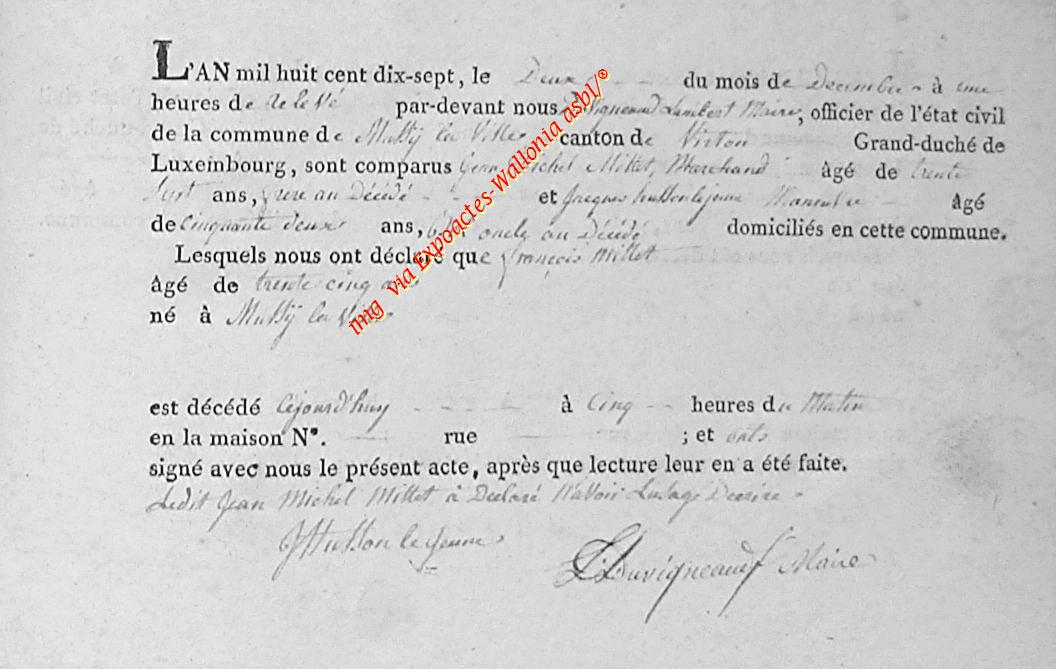 L'AN mil huit cent dix-sept, le Deux du mois de Decembre à une
heures de rele Vé par-devant nous Duvigneaud Lambert Maire, officier de l'état civil
de la commune de Mussy la Ville canton de Virton Grand-duché de
Luxembourg, sont comparus Jean Michel Millet, Marchand âgé de trente
Sept ans, frere au Décédé et Jacques husson le jeune âgé
de Cinquante deux ans, oncle au Décédé domiciliés en cette commune.
Lesquels nous ont déclaré que françois Millet
âgé de trente cinq ans
né à Mussy la Ville
est décédé Cejourd'huy à Cinq heures du Matin
en la maison N°. rue ; et onts
signé avec nous le présent acte, après que lecture leur en a été faite.
Ledit Jean Michel Millet à Declaré N'avoir Lusage Decrire
J Husson le Jeune
L Duvigneaud Maire
img via Expoactes-Wallonia asbl/®